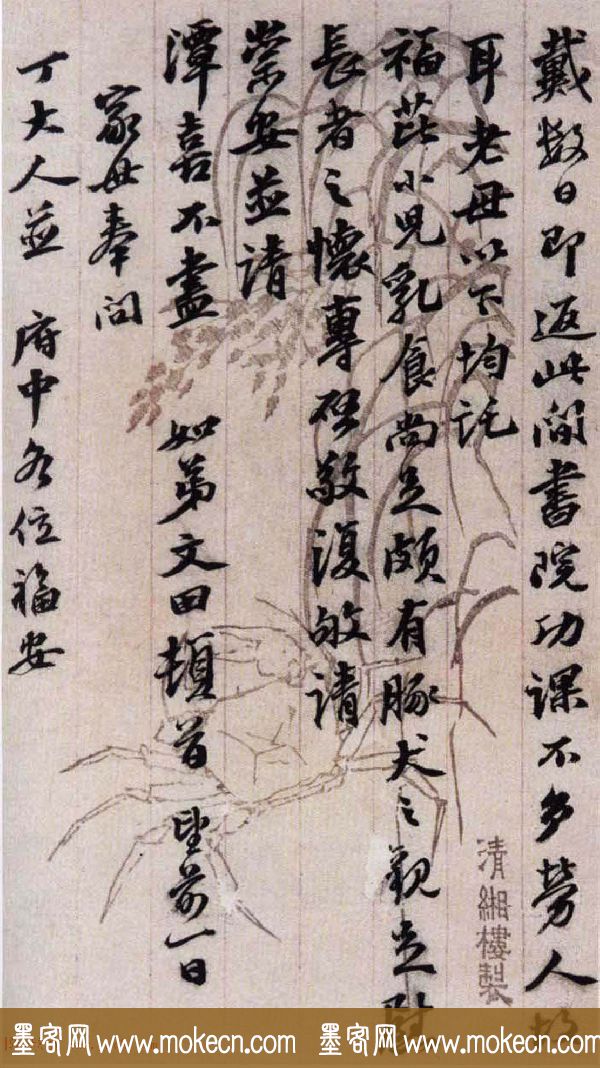 戴数日即返此间書院功課不多勞人
耳老母以下均託
福芘小兒乳食尚足頗有豚犬之觀足慰
長者之懷專啓敬復敬請
崇安並請
潭喜不盡 如弟文田頓首 望前一日
家母奉問
丁大人並 府中各位福安
清緗樓製
墨客网 www.mokecn.com 墨客网 www.mokecn.com